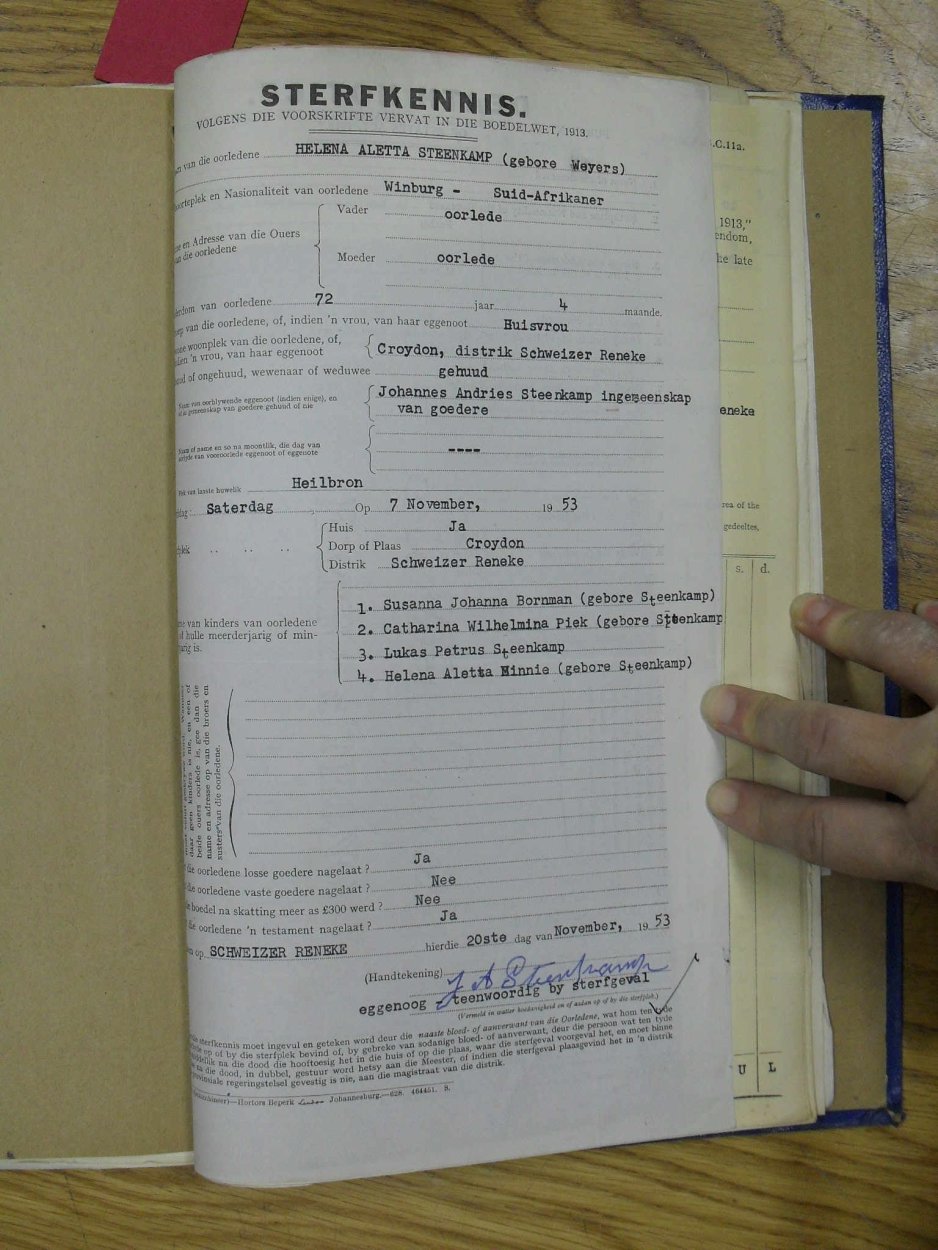 STERFKENNIS.
VOLGENS DIE VOORSKRIFTE VERVAT IN DIE BOEDELWET, 1913.
van die oorledene HELENA ALETTA STEENKAMP (gebore Weyers)
en Nasionaliteit van oorledene Winburg - Suid-Afrikaner
en Adresse van die Ouers
van die oorledene
Vader oorlede
Moeder oorlede
van oorledene 72 jaar 4 maande.
van die oorledene, of, indien 'n vrou, van haar eggenoot Huisvrou
woonplek van die oorledene, of,
'n vrou, van haar eggenoot
Croydon, distrik Schweizer Reneke
of ongehuud, wewenaar of weduwee gehuud
Naam van oorblywende eggenoot (indien enige), en
of in gemeenskap van goedere gehuud of nie
Johannes Andries Steenkamp ingemeenskap
van goedere
of name en so na moontlik, die dag van
van vooroorlede eggenoot of eggenote
----
van laaste huwelik Heilbron
Saterdag Op 7 November, 1953
Huis Ja
Dorp of Plaas Croydon
Distrik Schweizer Reneke
van kinders van oorledene
hulle meerderjarig of min-
is.
1. Susanna Johanna Bornman (gebore Steenkamp)
2. Catharina Wilhelmina Piek (gebore Steenkamp
3. Lukas Petrus Steenkamp
4. Helena Aletta Minnie (gebore Steenkamp)
daar geen kinders is nie, en een of
beide ouers oorlede is, gee dan die
name en adresse op van die broers en
susters van die oorledene.
die oorledene losse goedere nagelaat? Ja
die oorledene vaste goedere nagelaat? Nee
boedel na skatting meer as £300 werd? Nee
die oorledene 'n testament nagelaat? Ja
op SCHWEIZER RENEKE hierdie 20ste dag van November, 1953
(Handtekening) J A Steenkamp
eggenoog - teenwoordig by sterfgeval
(Vermeld in watter hoedanigheid en of aldan op of by die sterfplek.)
sterfkennis moet ingevul en geteken word deur die naaste bloed- of aanverwant van die Oorledene, wat hom ten tyde
op of by die sterfplek bevind of, by gebreke van sodanige bloed- of aanverwant, deur die persoon wat ten tyde
na die dood die hooftoesig het in die huis of op die plaas, waar die sterfgeval voorgeval het, en moet binne
na die dood, in dubbel, gestuur word hetsy aan die Meester, of indien die sterfgeval plaasgevind het in 'n distrik
regeringstelsel gevestig is nie, aan die magistraat van die distrik.
Hortors Beperk Johannesburg.—628. 464451. S.
.C.11a.
1913,"
endom,
he late
eneke
rea of the
gedeeltes,
s. d.
U L